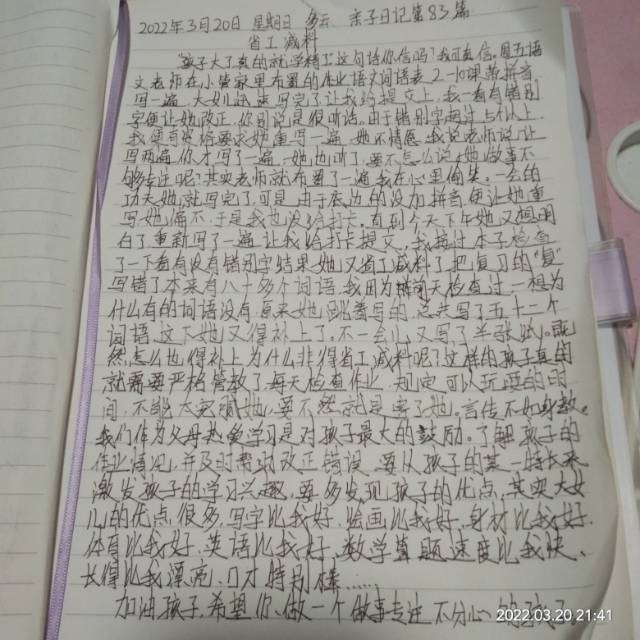 2022年3月20日 星期日 多云 亲子日记第83篇
省工减料
孩子大了真的就学精了这句话你信吗?我可真信.周五语
文老师在小管家里布置的作业语文词语表2-10课带拼音
写一遍,大女儿
写完了让我给提交上,我一看有错别
字便让她改正.你别说是很听话.由于错别字超过七个以上.
我便
要求她重写一遍,她不情愿,我说老师说让
写两遍,你才写了一遍,她也听了.要不怎么说大她做事不
够专注呢?其实老师就布置了一遍我在心里偷笑.一会的
功夫她就写完了.可是由于底边的没加拼音便让她重
写她偏不.于是我也没给打卡.直到今天下午她又想明
白了重新写了一遍让我给打卡提交.我接过本子检查
了一下看有没有错别字结果她又省工减料了把复习的"复"
写错了本来有八十多个词语.我因为
天检查过一想为
什么有的词语没有.原来她跳着写的.总共写了五十二个
词语.这下她又得补上了.不一会儿又写了半张纸.既
然怎么也得补上为什么非得省工减料呢?这样的孩子真的
就需要严格管教了每天检查作业.规定可以玩耍的时
间.不能太宠溺她.要不然就是害了她.言传不如身教.
我们作为父母热爱学习是对孩子最大的鼓励.了解孩子的
作业情况,并及时帮助改正错误.要从孩子的某一特长来
激发孩子的学习兴趣.要多发现孩子的优点.其实大女
儿的优点很多,写字比我好.绘画比我好,身材比我好.
体育比我好.英语比我好.数学算题速度比我快.
长得比我漂亮.口才特别棒……
加油孩子希望你做一个做事专注不分心的孩子
2022.03.20 21:41